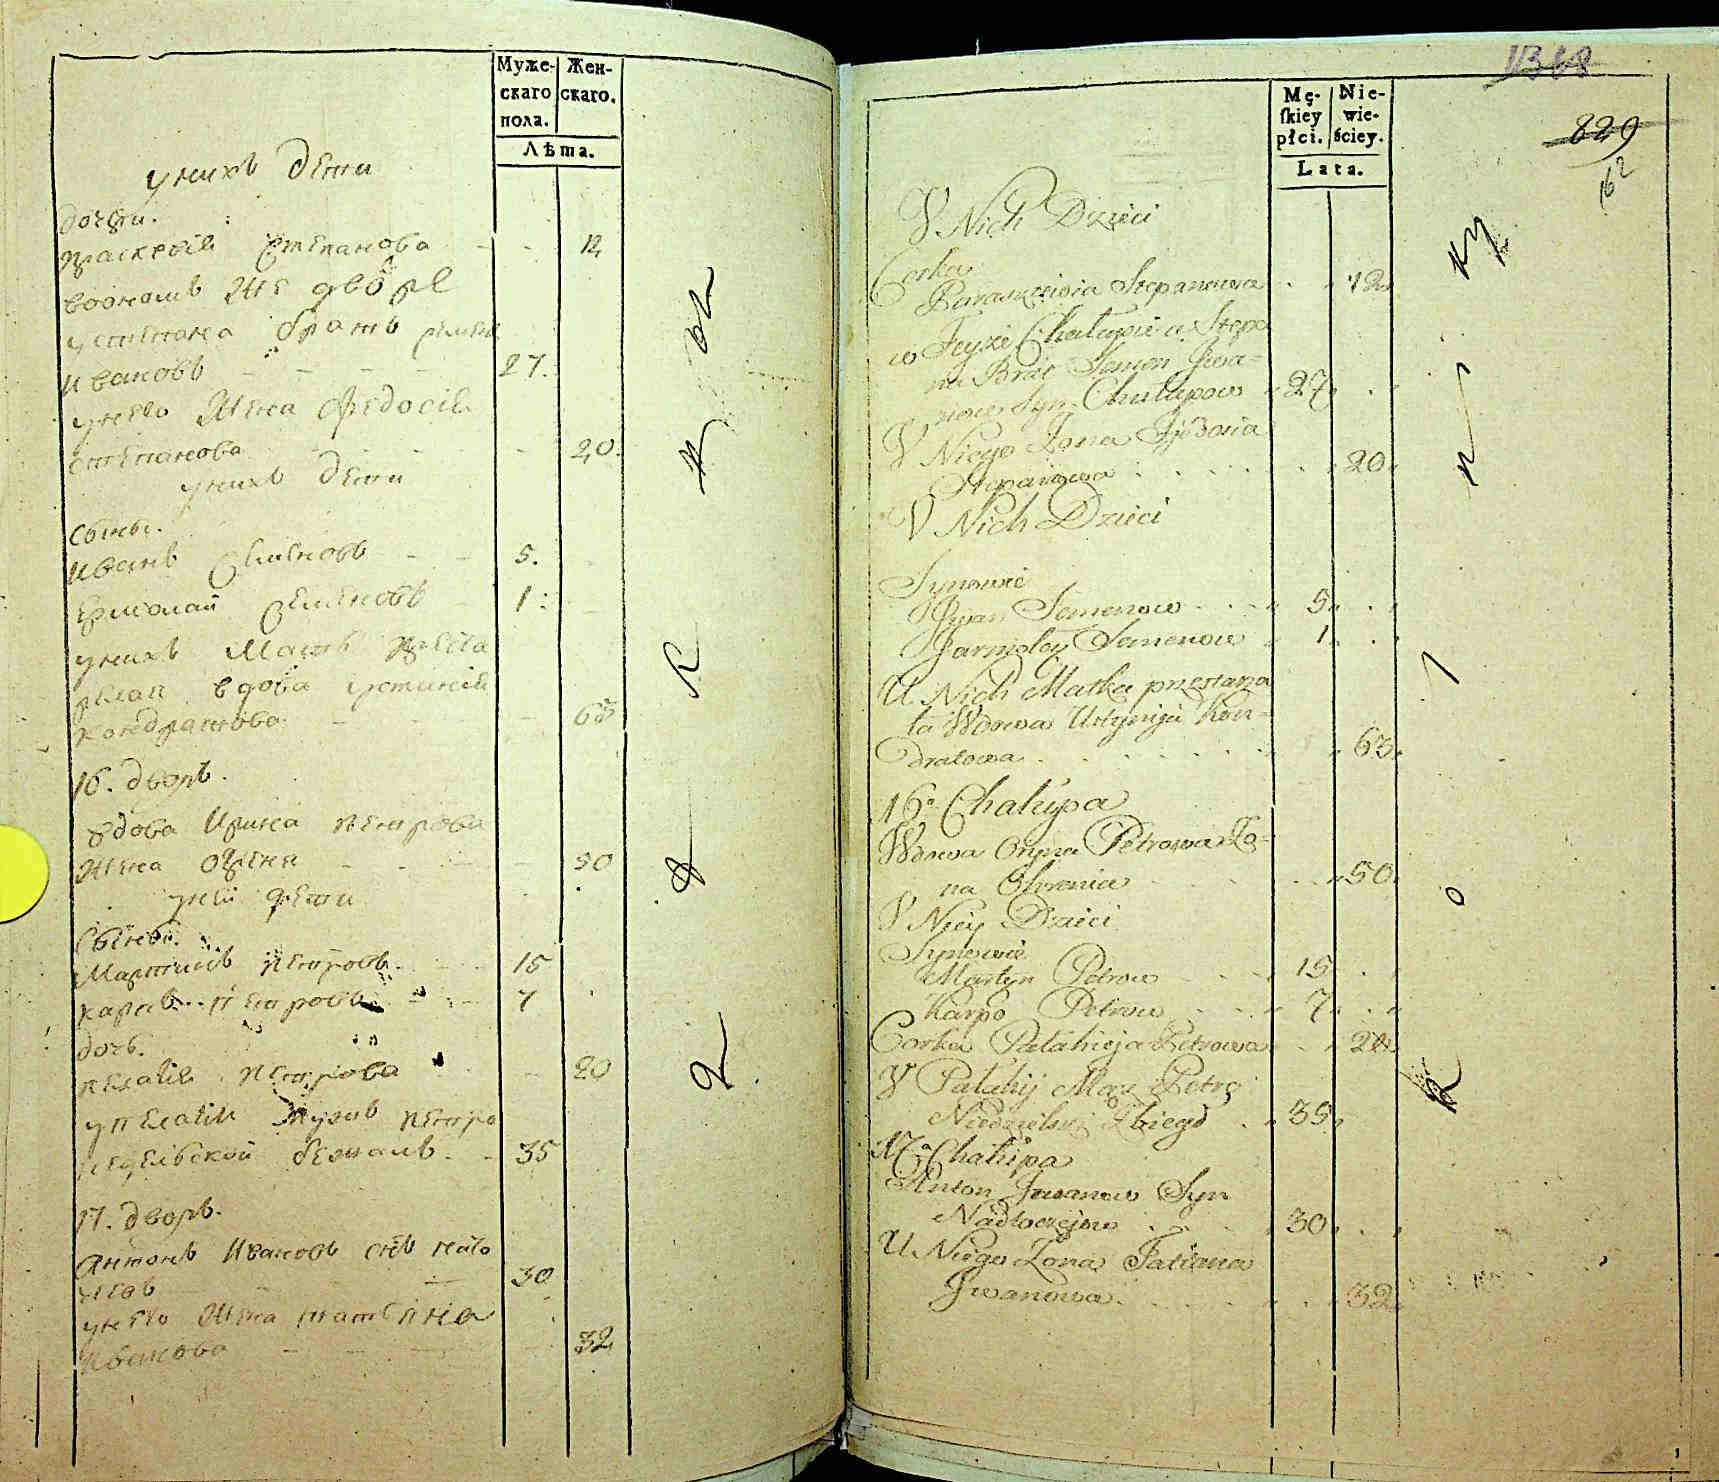 Муже-
скаго
пола.
Жен-
скаго.
Лѣта.
у нихъ дети
дочери.
Праскевія Степанова 12
в оономъ же дворе
у степана братъ Семенъ
Ивановъ 27.
у него жена Федосія
степанова 20.
у нихъ дети
сыны.
Иванъ Семеновъ 5.
Ермолай Семеновъ 1.
у нихъ мать преста
релая вдова Устинія
Кондратова 63
16. дворъ.
вдова Ирина Петрова
жена
50
у ней дети
Сыны.
Мартинъ Петровъ. 15
карпъ Петровъ 7
дочь.
Пелагія Петрова 20
у Пелагіи мужъ Петро
35
17. дворъ.
Антонъ Ивановъ снъ
30
у него жена татіяна
Иванова 32
1368
829
162
Mę-
skiey
płci.
Nie-
wie-
ściey.
Lata.
V Nich Dzieci
Corka
Paraszkiewia Stepanowa 12
w Teyże Chałupie u Stepa
na Brat Semen Iwa-
now Syn Chałupow 27
V Niego Żona Fedosia
Stepanowa 20
V Nich Dzieci
Synowie
Iwan Semenow 5
Jarmoley Semenow 1
U Nich Matka przestarza
ła Wdowa Ustynija Kon-
dratowa 63
16a Chałupa
Wdowa Oryna Petrowa Żo-
na 50
V Niey Dzieci
Synowie
Martyn Petrow 15
Karpo Petrow 7
Corka Pałahieja Petrowa 20
V Pałahij Mąż Petro
Niedzielski Zbiegł 35
17a Chałupa
Anton Iwanow Syn
30
U Niego Żona Tatiana
Iwanowa 32